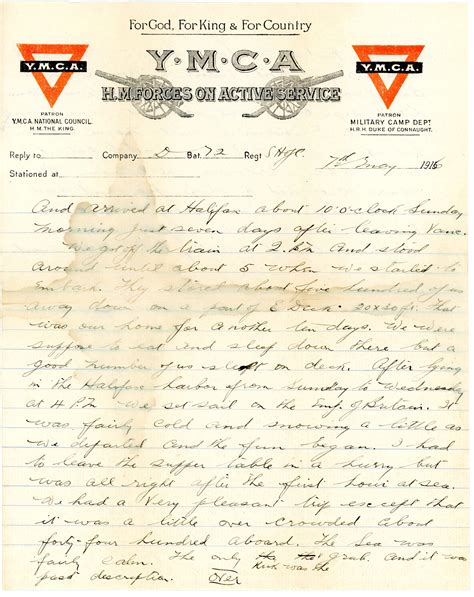 For God, For King & For Country
Y·M·C·A
H.M. FORCES ON ACTIVE SERVICE
Y.M.C.A.
PATRON
Y.M.C.A NATIONAL COUNCIL
H.M. THE KING.
Y.M.C.A.
PATRON
MILITARY CAMP DEPT
H.R.H. DUKE OF CONNAUGHT.
Reply to Company D Bat. 72 Regt SHofC.
Stationed at 7th May 1916
And arrived at Halifax about 10 o'clock Sunday
morning just seven days after leaving Vanc.
We got off the train at 2 P.M. And stood
around until about 5 when we started to
Embark. They stowed about five hundred of us
away down on a part of E Deck. 20x30 ft. That
was our home for Another ten days. We were
suppose to eat and sleep down there but a
good number of us slept on deck. After lying
in the Halifax harbor from Sunday to Wednesday
at 4 P.M. We set sail on the Emp. of Britain. It
was fairly cold and snowing a little as
we departed And the fun began. I had
to leave the supper table in a hurry but
was all right after the first hour at sea.
We had a Very pleasant trip except that
it was a little over crowded About
forty-four hundred aboard. The Sea was
fairly calm. The only kick was the grub. And it was
past description.
Over